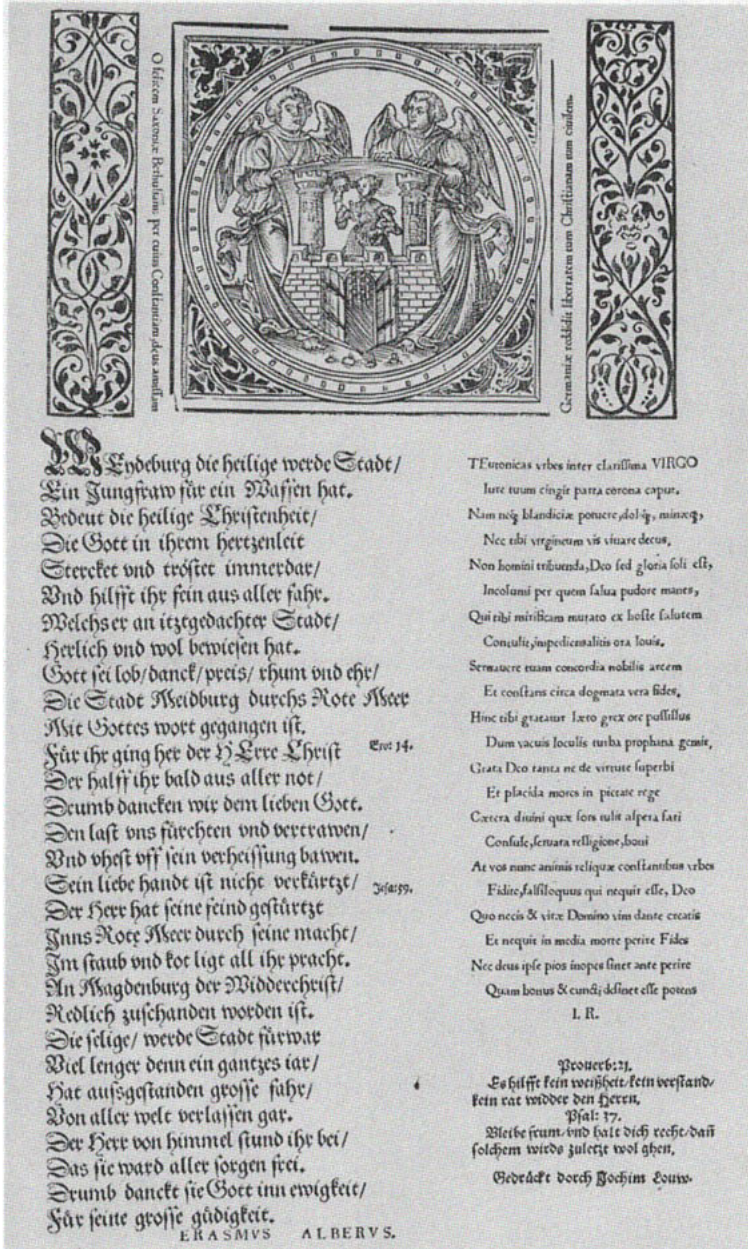 O felicem Saxoniæ Bethuliam, per cuius Constantiam, deus amissam
Germaniæ reddidit libertatem cum Christianam tum ciuilem.
MEydeburg die heilige werde Stadt/
Ein Jungfraw für ein Waffen hat.
Bedeut die heilige Christenheit/
Die Gott in ihrem hertzenleit
Stercket vnd tröstet immerdar/
Vnd hilfft ihr fein aus aller fahr.
Welchs er an itztgedachter Stadt/
Herlich vnd wol bewiesen hat.
Gott sei lob/danck/preis/ rhum vnd ehr/
Die Stadt Meidburg durchs Rote Meer
Mit Gottes wort gegangen ist.
Für ihr ging her der HErre Christ
Exo: 14.
Der halff ihr bald aus aller not/
Drumb dancken wir dem lieben Gott.
Den last vns fürchten vnd vertrawen/
Vnd vhest vff sein verheissung bawen.
Sein liebe handt ist nicht verkürtzt/
Jesa:59.
Der Herr hat seine feind gestürtzt
Inns Rote Meer durch seine macht/
Im staub vnd kot ligt all ihr pracht.
An Magdenburg der Widderchrist/
Redlich zuschanden worden ist.
Die selige/ werde Stadt fürwar
Viel lenger denn ein gantzes iar/
Hat aussgestanden grosse fahr/
Von aller welt verlassen gar.
Der Herr von himmel stund ihr bei/
Das sie ward aller sorgen frei.
Drumb danckt sie Gott inn ewigkeit/
Für seine grosse güdigkeit.
ERASMVS ALBERVS.
TEutonicas vrbes inter clarissima VIRGO
Iure tuum cingit parta corona caput.
Nam neq; blandiciæ potuere, doliq;, minæq;,
Nec tibi virgineum vis vitiare decus,
Non homini tribuenda, Deo sed gloria soli est,
Incolumi per quem salua pudore manes,
Qui tibi mirificam mutato ex hoste salutem
Consulit, ora Iouis.
Seruauere tuam concordia nobilis arcem
Et constans circa dogmata vera fides,
Hinc tibi gratatur læto grex ore pusillus
Dum vacuis loculis turba prophana gemit,
Grata Deo tanta ne de virtute superbi
Et placida mores in pietate rege
Cætera diuini quæ sors tulit aspera fati
Consule, seruata relligione, boni
At vos nunc animis reliquæ constantibus vrbes
Fidite, falsiloquus qui nequit esse, Deo
Quo necis & vitæ Domino vim dante creatis
Et nequit in media morte perire Fides
Nec deus ipse pios inopes sinet ante perire
Quam bonus & cuncti desinet esse potens
I. R.
Prouerb: 21.
Es hilfft kein weißheit/kein verstand/
kein rat widder den Herrn.
Psal: 37.
Bleibe frum/vnd halt dich recht/dañ
solchem wirds zuletzt wol ghen.
Gedrückt dorch Jochim Louw.